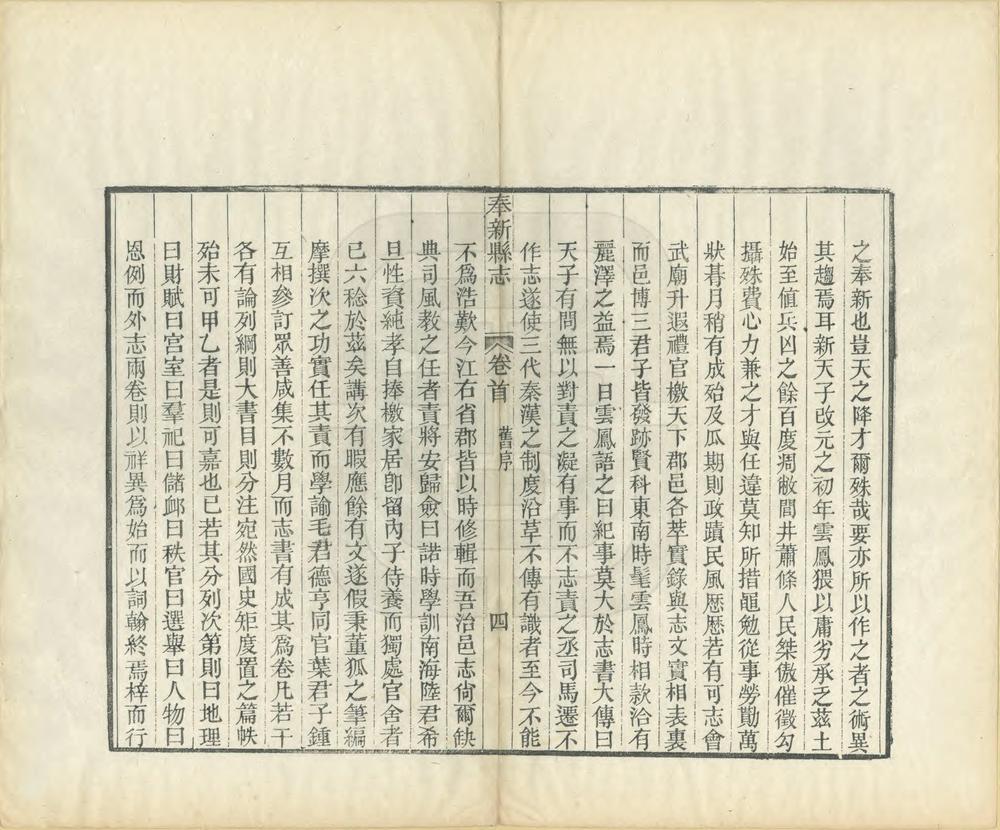 之奉新也豈天之降才爾殊哉要亦所以作之者之術異
其趨焉耳新天子改元之初年雲鳳猥以庸劣承乏茲土
始至値兵凶之餘百度凋敝閭井蕭條人民桀傲催徵勾
攝殊費心力兼之才與任違莫知所措黽勉從事勞勩萬
狀朞月稍有成殆及瓜期則政蹟民風厯厯若有可志會
武廟升遐禮官檄天下郡邑各萃實錄與志文實相表裏
而邑博三君子皆發跡賢科東南時髦雲鳳時相款洽有
麗澤之益焉一日雲鳳語之曰紀事莫大於志書大傳曰
天子有問無以對責之凝有事而不志責之丞司馬遷不
作志遂使三代秦漢之制度沿革不傳有識者至今不能
奉新縣志
卷首
舊序
四
不爲浩歎今江右省郡皆以時修輯而吾治邑志尙爾缺
典司風教之任者責將安歸僉曰諾時學訓南海陸君希
旦性資純孝自捧檄家居卽留內子侍養而獨處官舍者
已六稔於茲矣講次有暇應餘有文遂假秉董狐之筆編
摩撰次之功實任其責而學諭毛君德亨同官葉君子鍾
互相參訂眾善咸集不數月而志書有成其爲卷凡若干
各有論列綱則大書目則分注宛然國史矩度置之篇帙
殆未可甲乙者是則可嘉也已若其分列次第則曰地理
曰財賦曰宮室曰羣祀曰儲卹曰秩官曰選舉曰人物曰
恩例而外志兩卷則以祥異爲始而以詞翰終焉梓而行